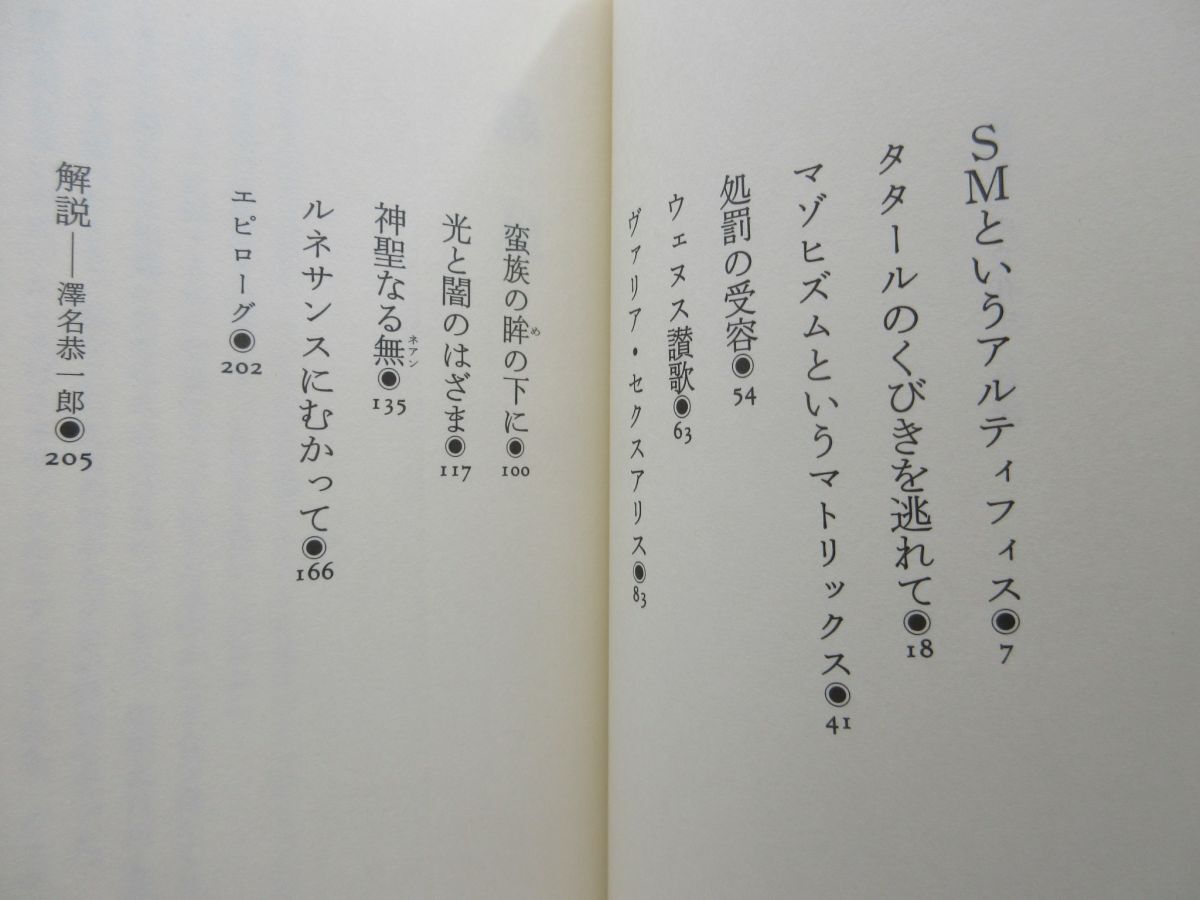 SMというアルティフィス◉7
タタールのくびきを逃れて◉18
マゾヒズムというマトリックス◉41
処罰の受容◉54
ウェヌス讃歌◉63
ヴァリア・セクスアリス◉83
蛮族の眸の下に◉100
め
光と闇のはざま◉117
神聖なる無◉135
ネアン
ルネサンスにむかって◉166
エピローグ◉202
解説──澤名恭一郎◉205